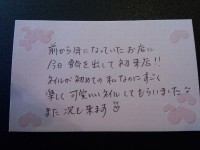 前から気になっていたお店に
今日勇気を出して初来店!!
ネイルが初めての私なのにすごく
楽しく可愛いネイルしてもらいました
また次し来ます